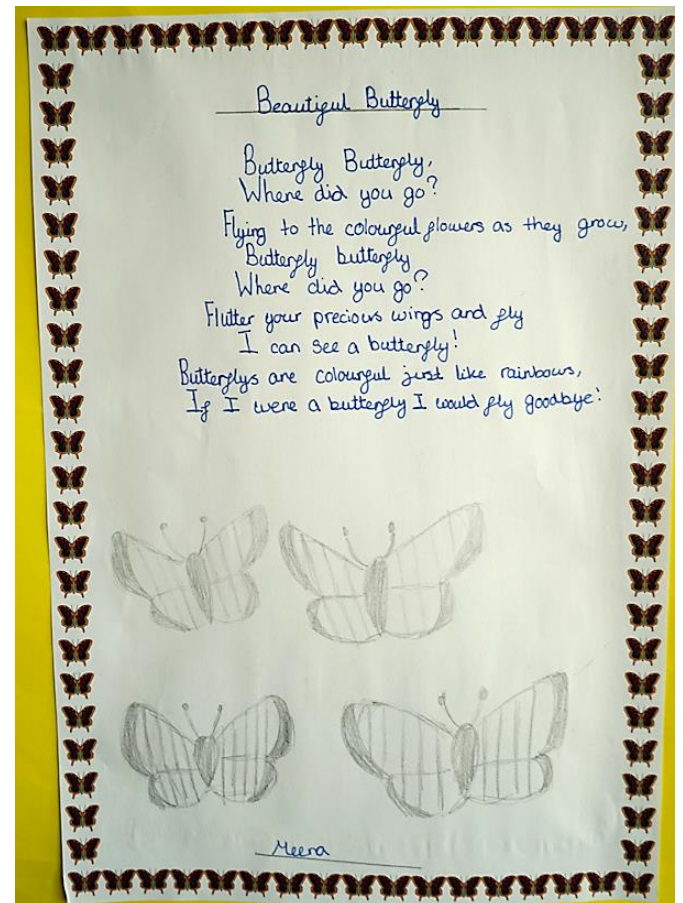 Beautiful Butterfly
Butterfly Butterfly,
Where did you go?
Flying to the colourful flowers as they grow,
Butterfly butterfly
Where did you go?
Flutter your precious wings and fly
I can see a butterfly!
Butterflys are colourful just like rainbows,
If I were a butterfly I would fly goodbye!
Meera